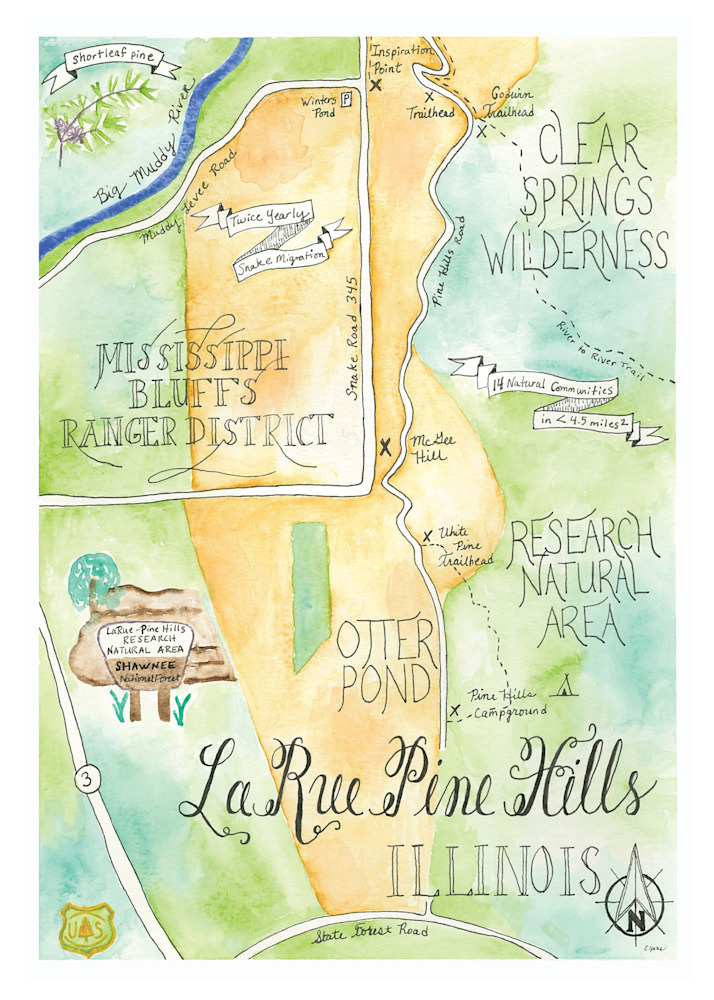 shortleaf pine
Big Muddy River
Muddy Levee Road
Winters
Pond
P
Inspiration
Point
Trailhead
Godwin
Trailhead
CLEAR
SPRINGS
WILDERNESS
Twice Yearly
Snake Migration
Snake Road 345
Pine Hills Road
River to River Trail
MISSISSIPPI
BLUFFS
RANGER DISTRICT
14 Natural Communities
in < 4.5 miles2
McGee
Hill
White
Pine
Trailhead
RESEARCH
NATURAL
AREA
LaRue-Pine Hills
RESEARCH
NATURAL AREA
SHAWNEE
National Forest
OTTER
POND
Pine Hills
Campground
3
LaRue Pine Hills
ILLINOIS
N
US
State Forest Road